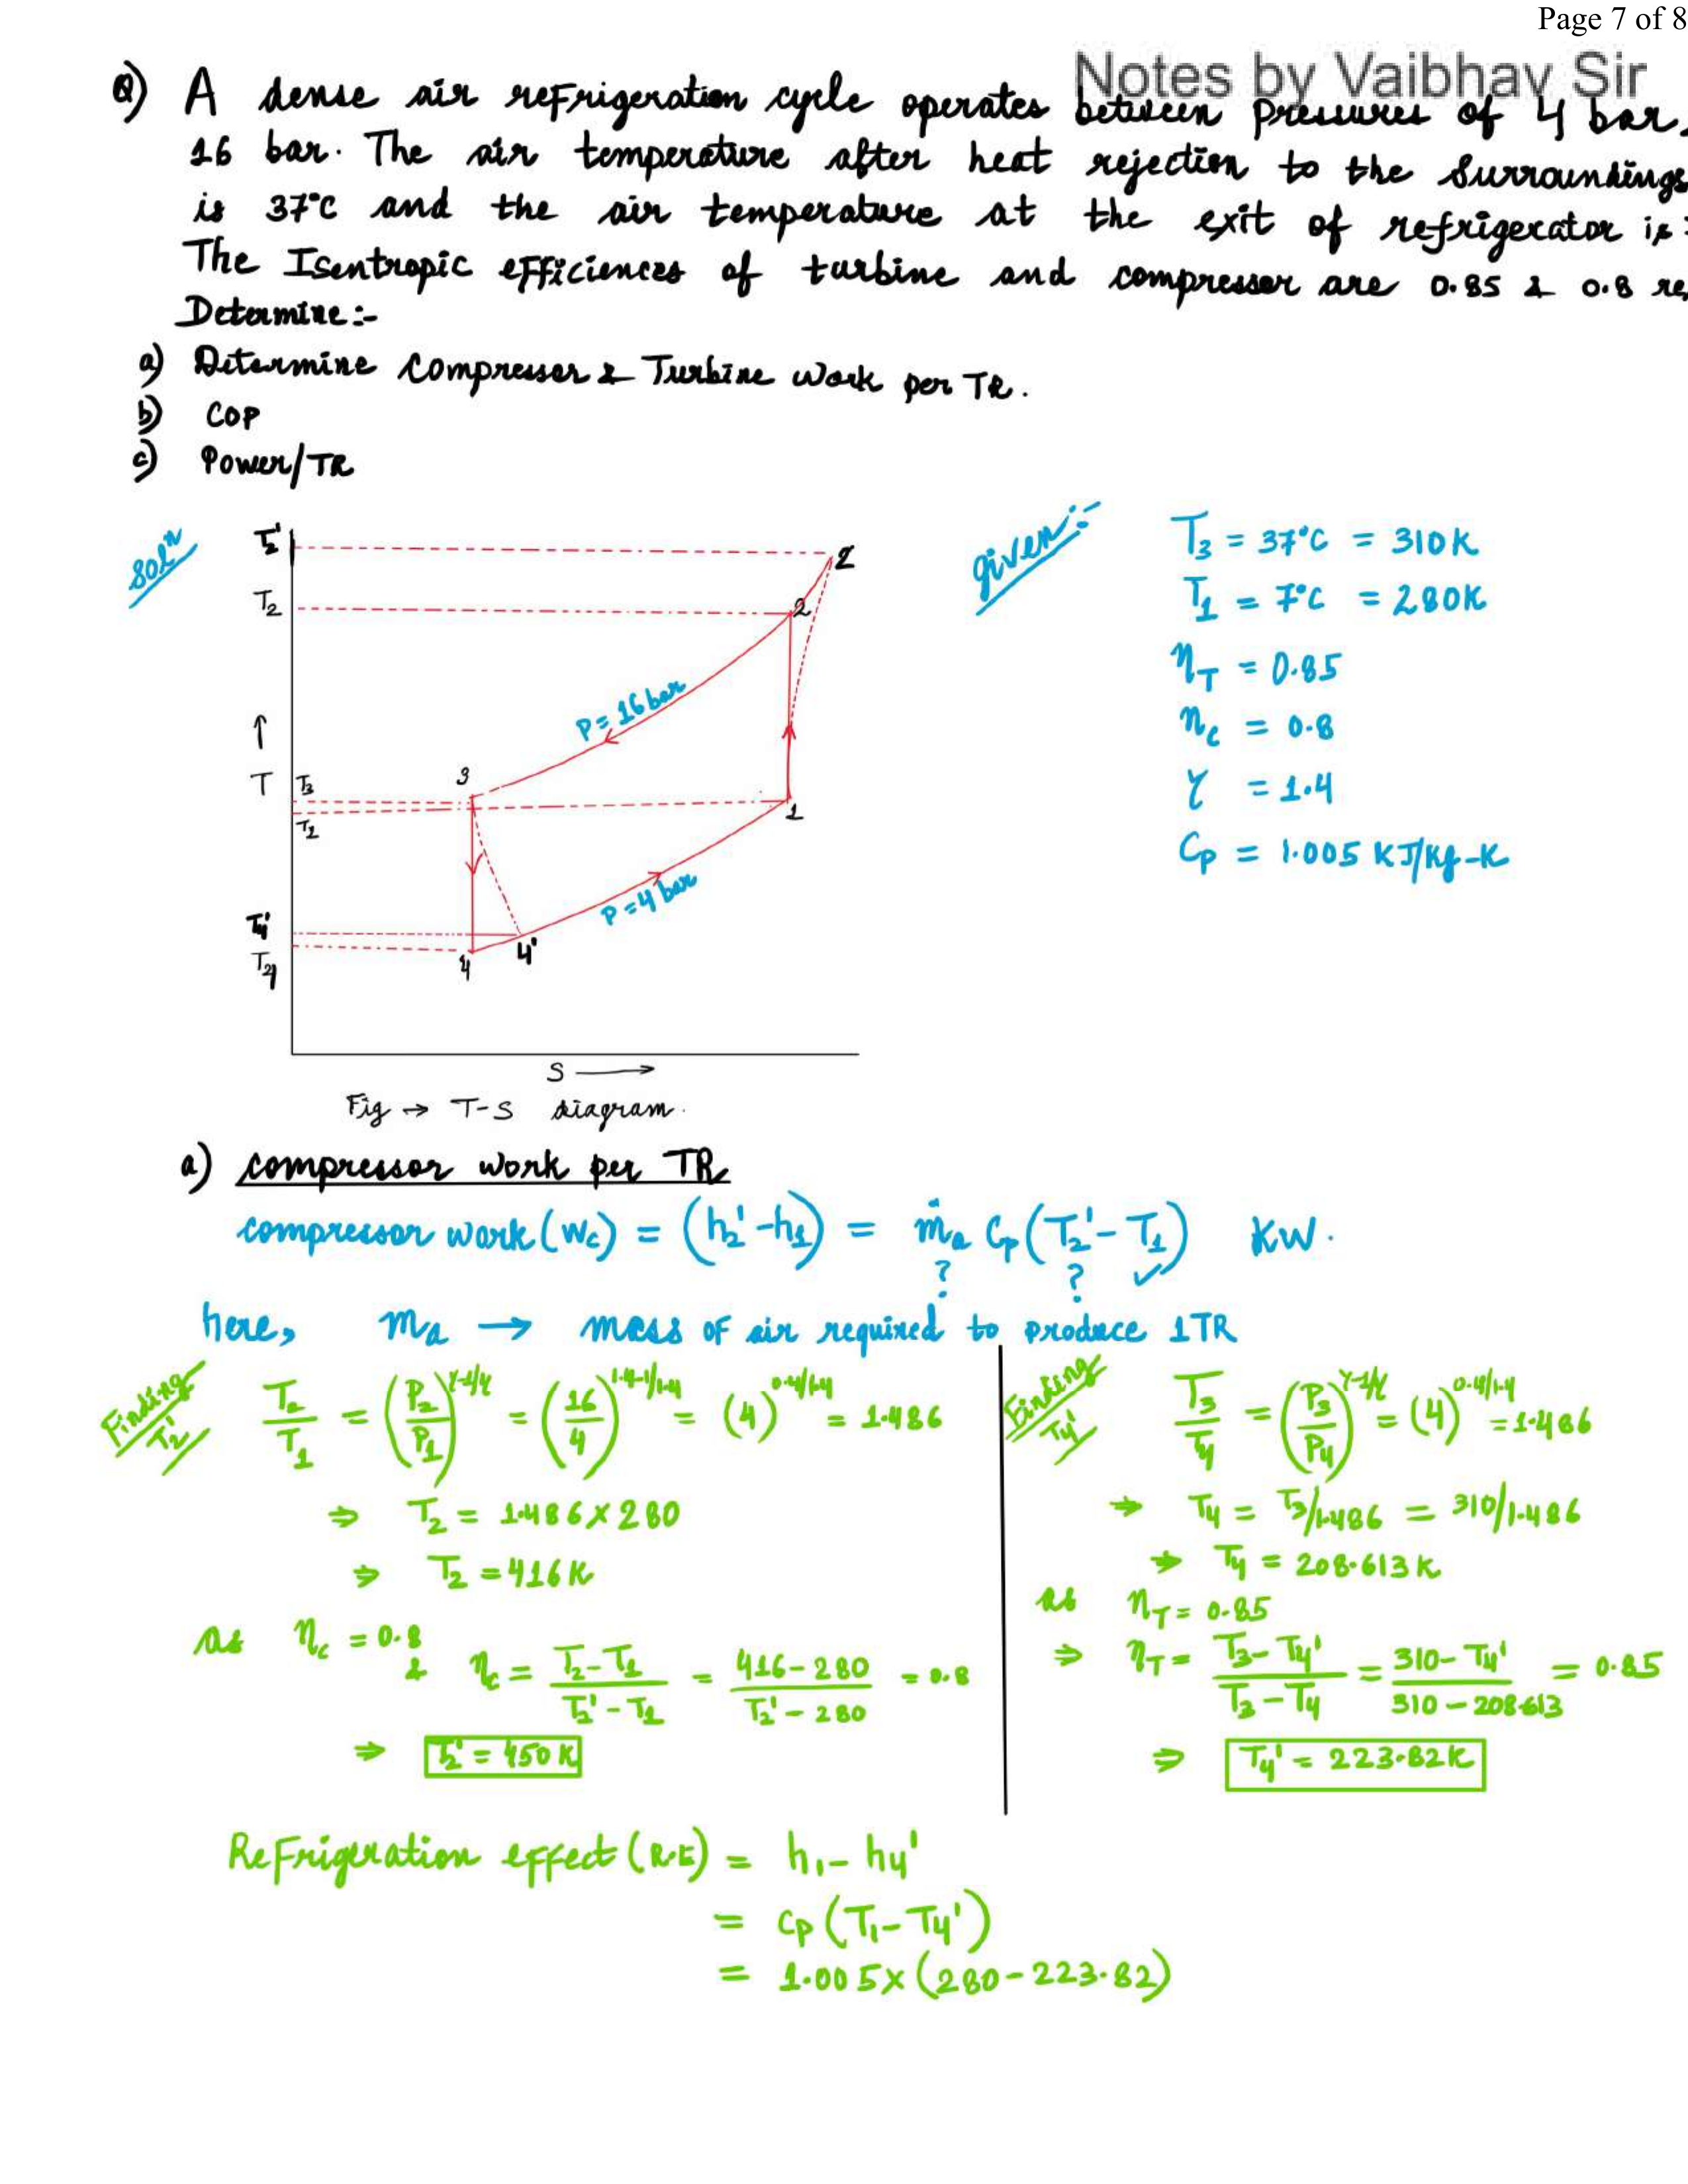 Page 7 of 8
Notes by Vaibhav Sir
Q) A dense air refrigeration cycle operates between pressures of 4 bar
16 bar. The air temperature after heat rejection to the surroundings
is 37°C and the air temperature at the exit of refrigerator is
The Isentropic efficiences of turbine and compressor are 0.85 & 0.8 re
Determine:-
a) Determine Compressor & Turbine work per TR.
b) COP
c) Power/TR
Solⁿ
given:-
T3 = 37°C = 310K
T1 = 7°C = 280K
ηT = 0.85
ηc = 0.8
γ = 1.4
Cp = 1.005 KJ/Kg-K
T2'
T2
↑
T
T3
T1
T4'
T4
2'
2
P = 16 bar
3
1
P = 4 bar
4
4'
S →
Fig → T-S diagram.
a) compressor work per TR
compressor work (Wc) = (h2' - h1) = ṁa Cp (T2' - T1) KW.
? ? ✓
here, ma → mass of air required to produce 1TR
Finding T2'
T2/T1 = (P2/P1)^γ-1/γ = (16/4)^1.4-1/1.4 = (4)^0.4/1.4 = 1.486
⇒ T2 = 1.486 × 280
⇒ T2 = 416K
as ηc = 0.8
& ηc = T2-T1/T2'-T1 = 416-280/T2'-280 = 0.8
⇒ T2' = 450K
Finding T4'
T3/T4 = (P3/P4)^γ-1/γ = (4)^0.4/1.4 = 1.486
⇒ T4 = T3/1.486 = 310/1.486
⇒ T4 = 208.613K
as ηT = 0.85
⇒ ηT = T3-T4'/T3-T4 = 310-T4'/310-208.613 = 0.85
⇒ T4' = 223.82K
Refrigeration effect (R.E) = h1 - h4'
= Cp (T1 - T4')
= 1.005 × (280 - 223.82)